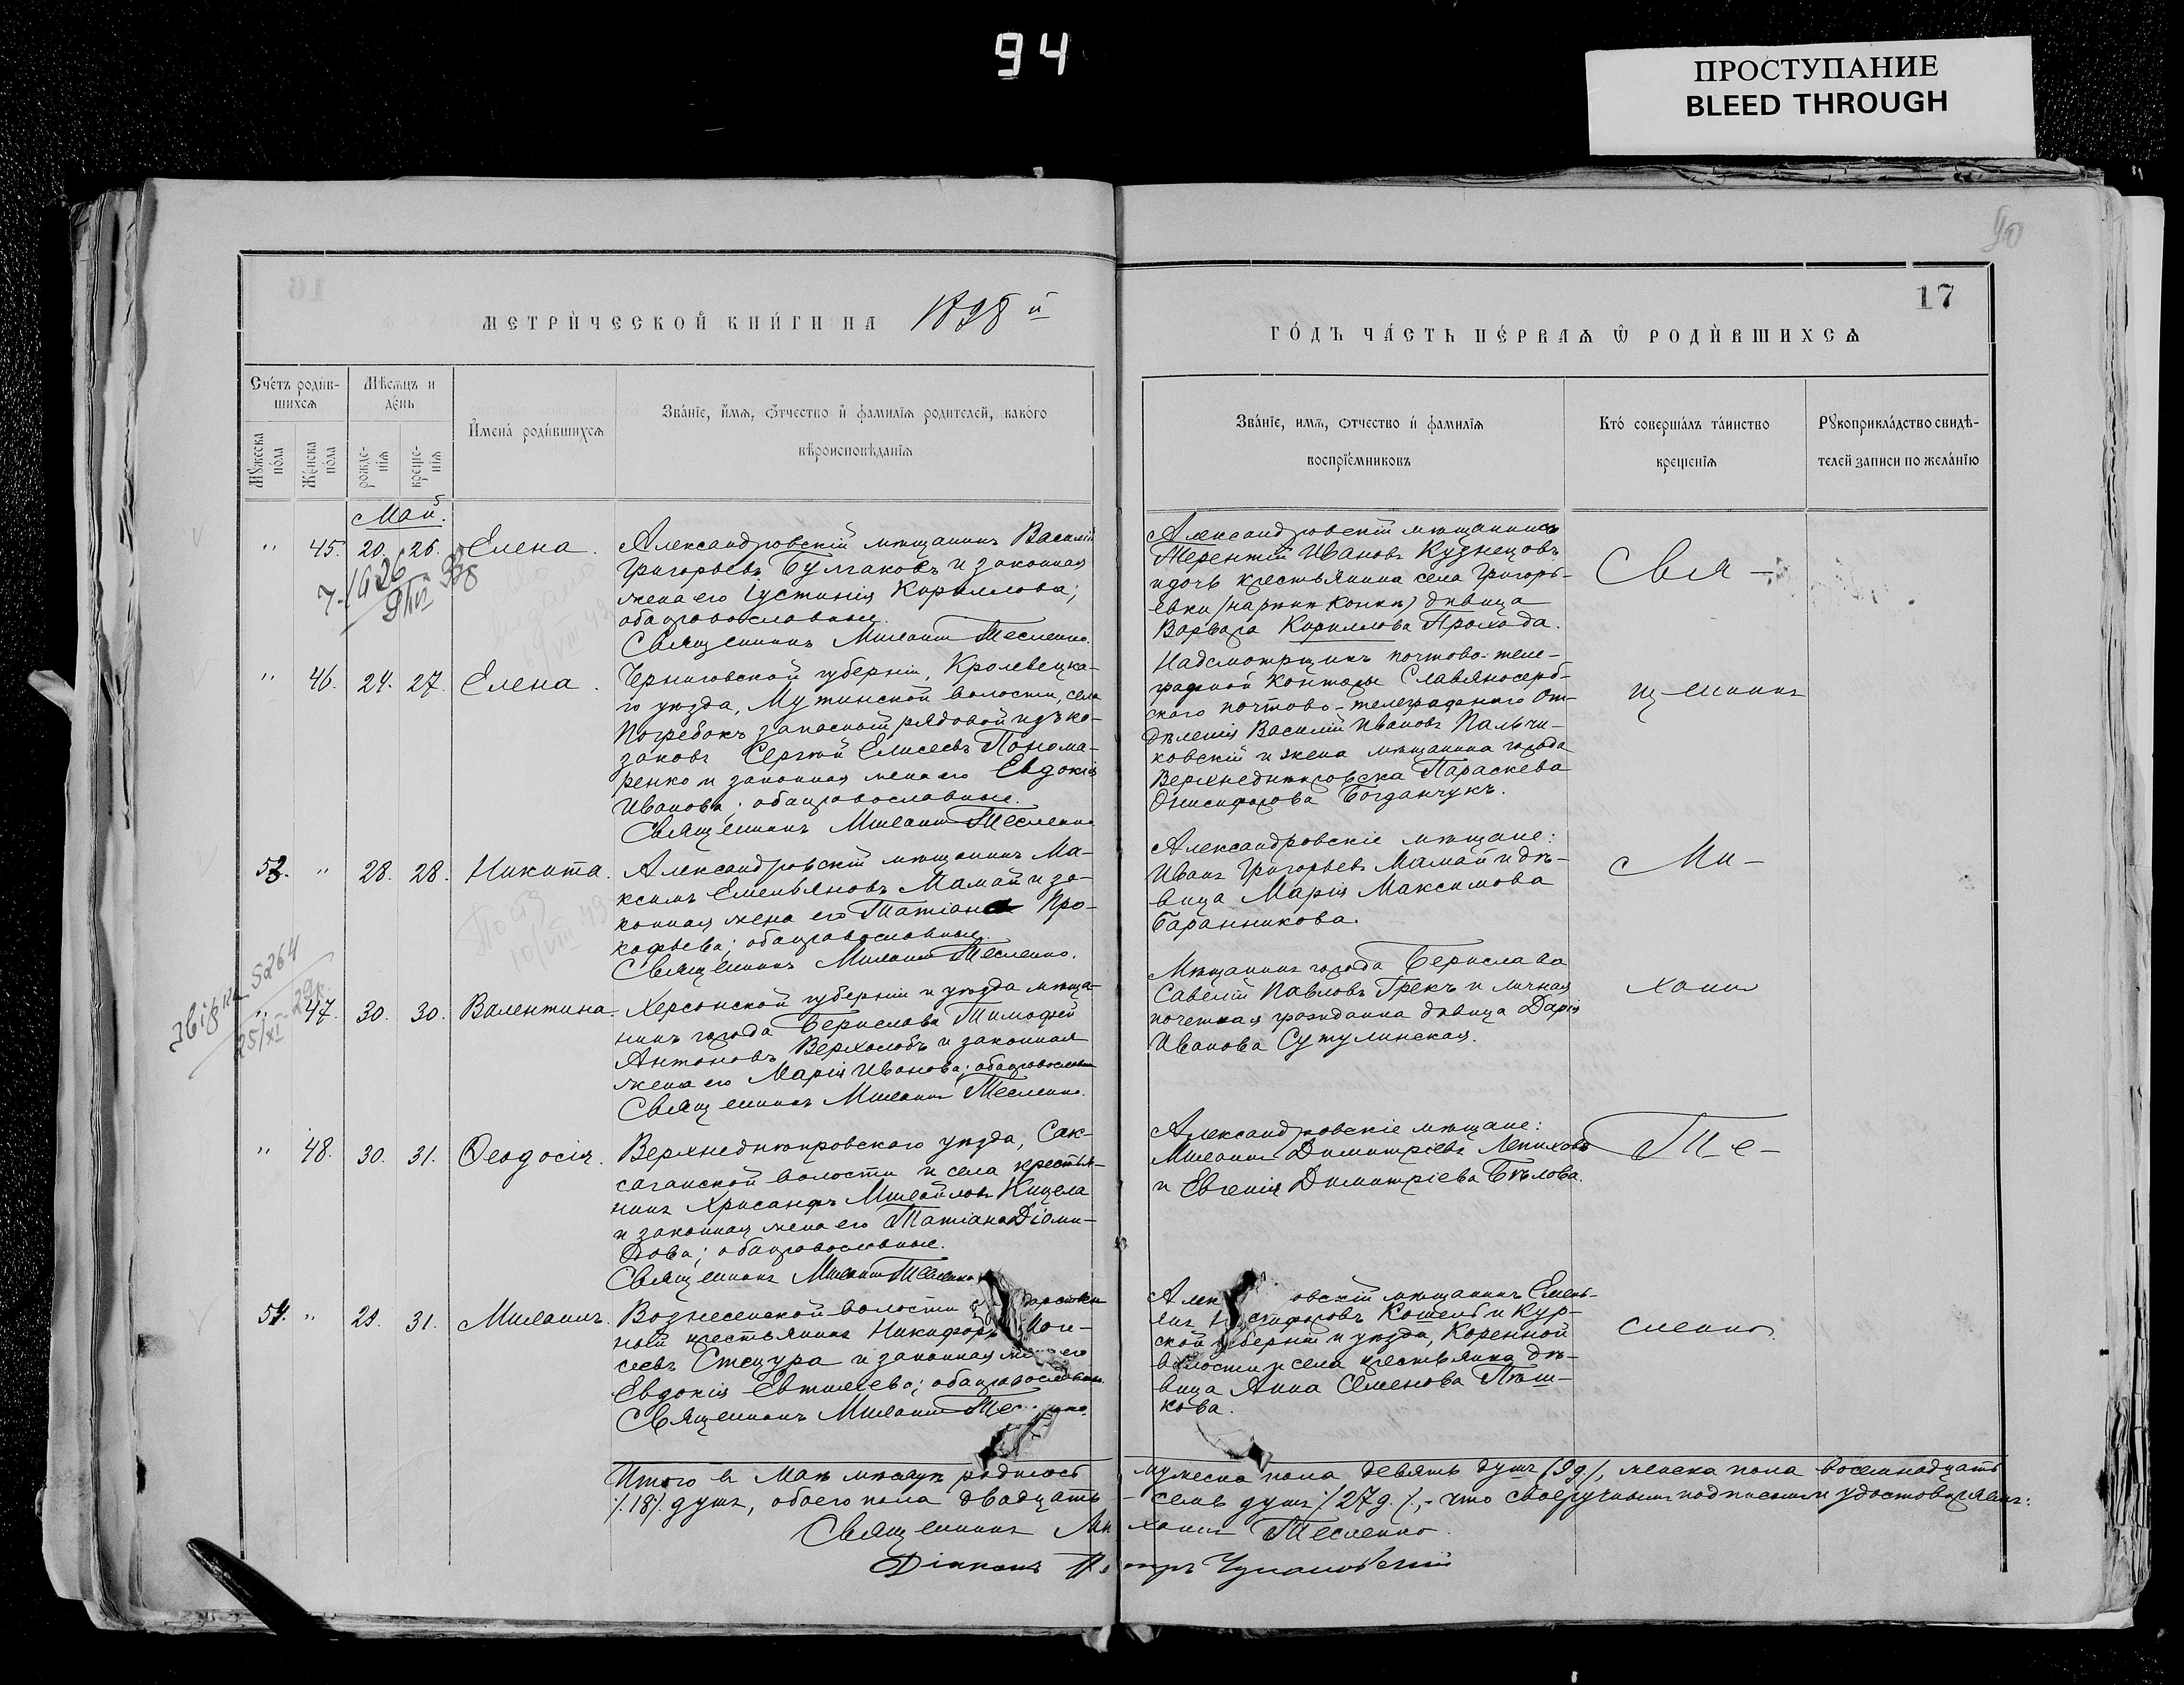 94
ПРОСТУПАНИЕ
BLEED THROUGH
90
17
МЕТРИЧЕСКОЙ КНИГИ НА 1898 й
ГОДЪ ЧАСТЬ ПЕРВАЯ Ѿ РОДИВШИХСѦ
Счетъ родив-
шихсѧ
Мѣсѧцъ и
день
Мꙋжеска
пола
Женска
пола
рожде-
нїѧ
креще-
нїѧ
Имена родившихсѧ
Званїе, имѧ, ѿчество и фамилїѧ родителей, какого
вѣроисповѣданїѧ
Званїе, имѧ, ѿчество и фамилїѧ
воспрїемниковъ
Кто совершалъ таинство
крещенїѧ
Рꙋкоприкладство свидѣ-
телей записи по желанїю
Май.
" 45. 20. 26. Елена.
Александровскій мѣщанинъ Василій
Григорьевъ Булгаковъ и законная
жена его Іустинія Кириллова;
оба православные.
Священникъ Михаилъ Тесленко.
Александровскій мѣщанинъ
Терентій Ивановъ Кузнецовъ
и дочь крестьянина села Григорь-
евки дѣвица
Варвара Кириллова
Свя-
" 46. 24. 27. Елена.
Черниговской губерніи, Кролевецка-
го уѣзда, Мутинской волости, села
Погребокъ запасный рядовой изъ ко-
заковъ Сергѣй Елисеевъ Понома-
ренко и законная жена его Евдокія
Иванова; оба православные.
Священникъ Михаилъ Тесленко
Надсмотрщикъ почтово-теле-
графной конторы Славяносерб-
скаго почтово-телеграфнаго От-
дѣленія Василій Ивановъ Пальчи-
ковскій и жена мѣщанина города
Верхнеднѣпровска Параскева
Онисифорова Богданчукъ.
щенникъ
53. " 28. 28. Никита.
Александровскій мѣщанинъ Ма-
ксимъ Емельяновъ Мамай и за-
конная жена его Татіана Про-
кофьева; оба православные.
Священникъ Михаилъ Тесленко.
Александровскіе мѣщане:
Иванъ Григорьевъ Мамай и дѣ-
вица Марія Максимова
Баранникова.
Ми-
5264
25/XI-29р.
" 47. 30. 30. Валентина.
Херсонской губерніи и уѣзда мѣща-
нинъ города Берислава Тимофей
Антоновъ Верхолобъ и законная
жена его Марія Иванова; оба православные
Священникъ Михаилъ Тесленко.
Мѣщанинъ города Берислава
Савелій Павловъ Грекъ и личная
почетная гражданка дѣвица Дарія
Иванова Сутулинская.
хаилъ
" 48. 30. 31. Ѳеодосія.
Верхнеднѣпровскаго уѣзда, Сак-
саганской волости и села крестья-
нинъ Хрисанфъ Михайловъ Кицела
и законная жена его Татіана Діоми-
дова; оба православные.
Священникъ Михаилъ Тесленко
Александровскіе мѣщане:
Михаилъ Димитріевъ Лепиховъ
и Евгенія Димитріева Бѣлова.
Те-
54. " 28. 31. Михаилъ.
Вознесенской волости
ный крестьянинъ Никифоръ Мои-
сеевъ Стецура и законная жена его
Евдокія Евтихіева; оба православные
Священникъ Михаилъ Тесленко.
Алек овскій мѣщанинъ Емель-
янъ Никифоровъ Кошель и Кур-
ской губерніи и уѣзда, Коренной
волости и села крестьянка дѣ-
вица Анна Семенова Пѣш-
кова.
сленко.
Итого въ Маѣ мѣсяцѣ родилось мужеска пола девять душъ /9 д./, женска пола восемнадцать
/18/ душъ, обоего пола двадцать-семь душъ /27 д./,- что своеручными подписями удостовѣряемъ:
Священникъ Михаилъ Тесленко.
Діаконъ Петръ